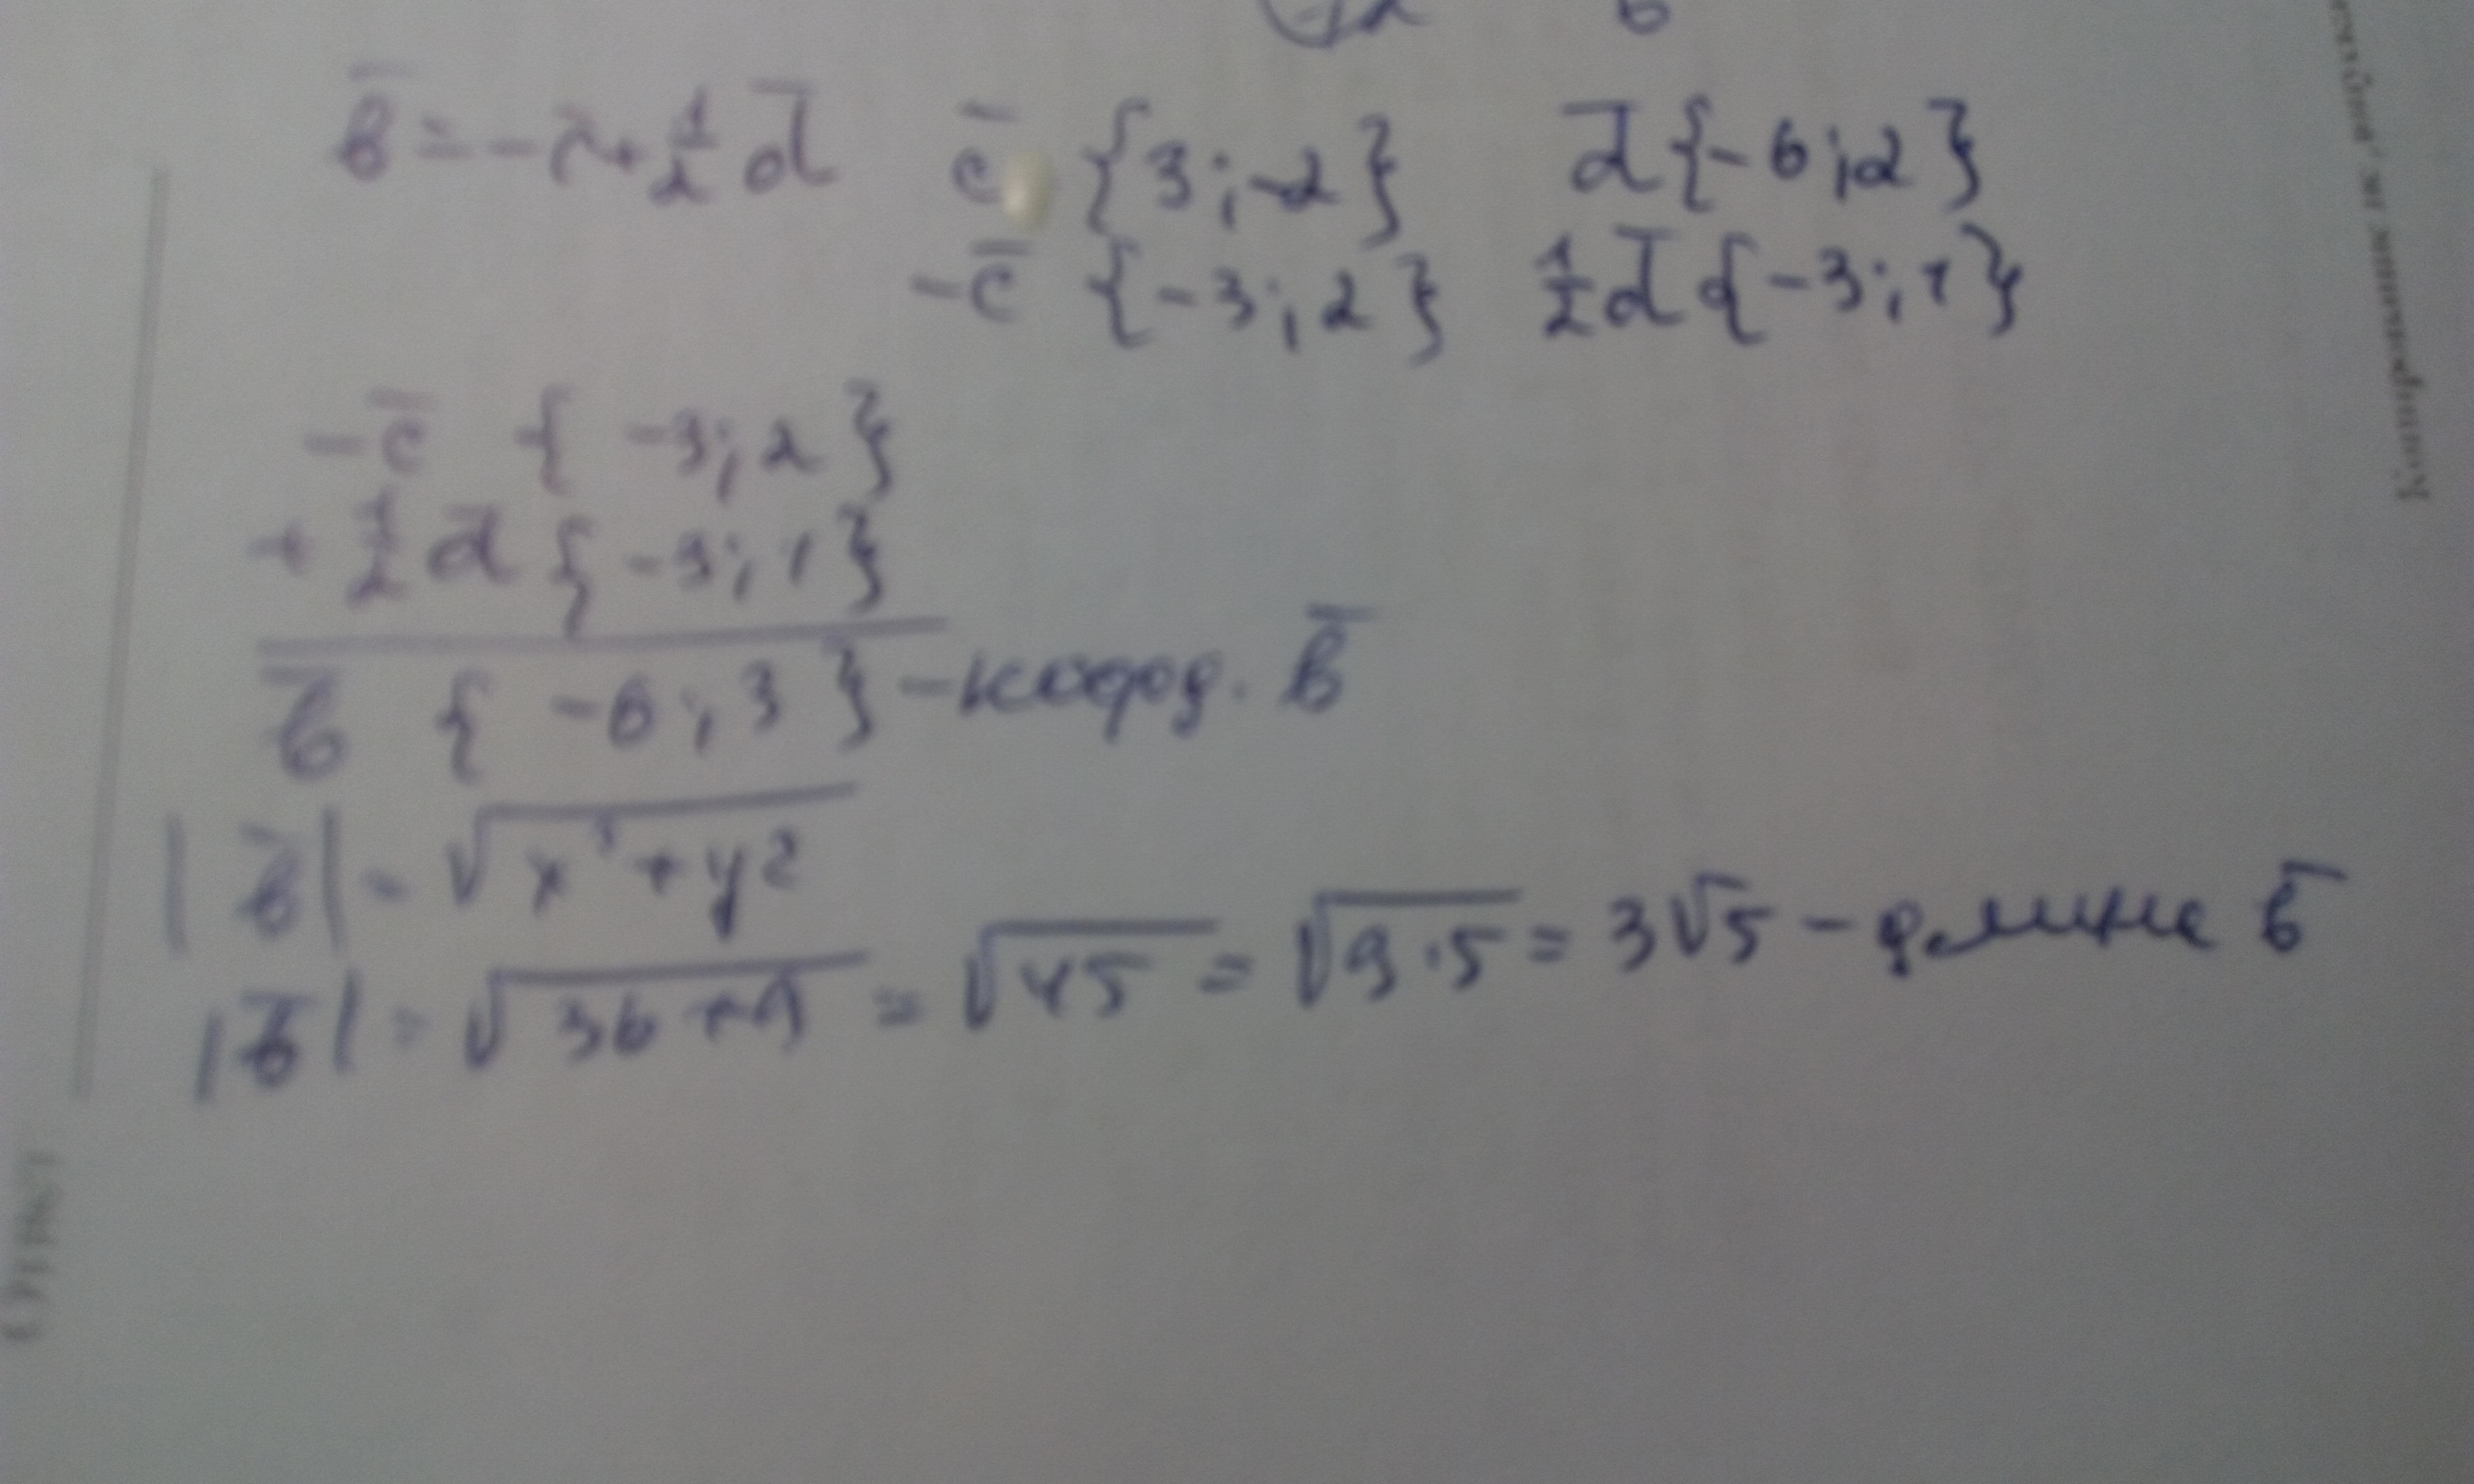 b̄ = -c̄ + 1/2 d̄   c̄ {3; -2}   d̄ {-6; 2}
-c̄ {-3; 2}   1/2 d̄ {-3; 1}
-c̄ { -3; 2 }
+ 1/2 d̄ { -3; 1 }
b̄ { -6; 3 } - коорд. b̄
|b̄| = √(x² + y²)
|b̄| = √(36+9) = √45 = √(9·5) = 3√5 - длина b̄